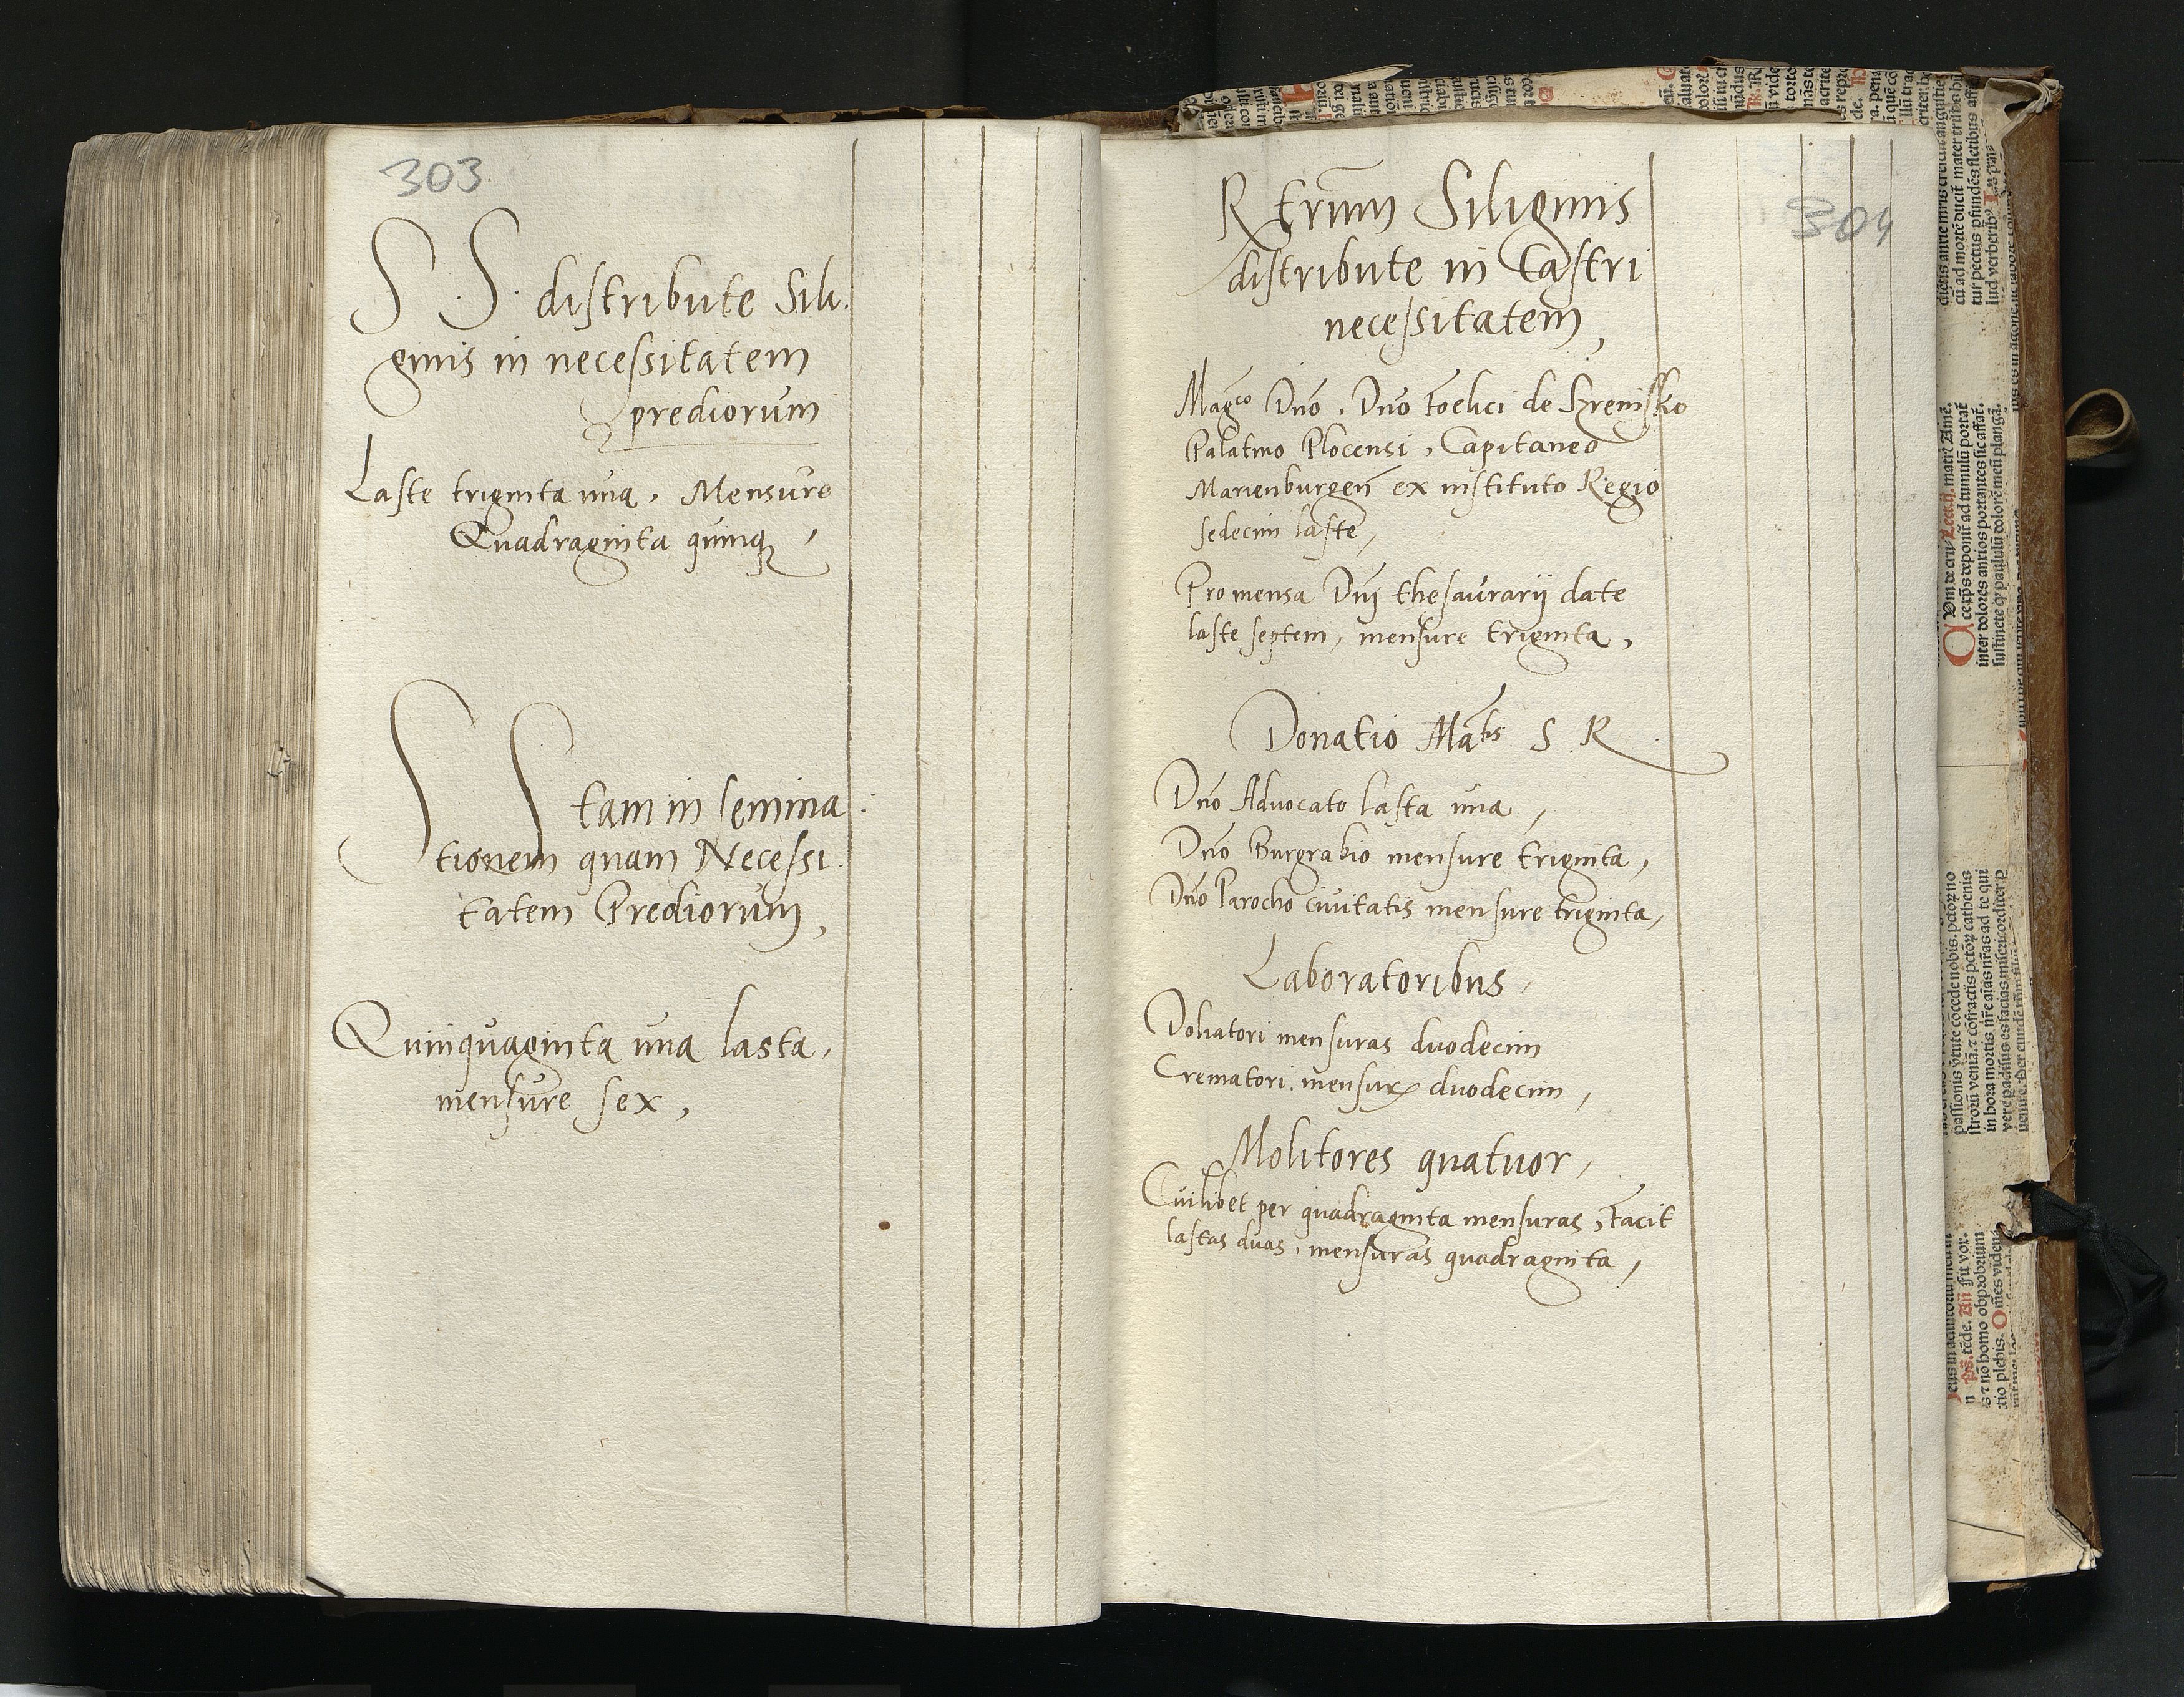 303.
S S. distribute Sili.
ginis in necessitatem
prediorum
Laste triginta una, Mensure
Quadraginta quinq,
S S tam in semina:
tionem quam Necessi.
tatem Prediorum,
Quinquaginta una lasta,
mensure sex,
304
Rerum Siliginis
distribute in Castri
necessitatem,
Magco Dno, Dno Foelici de Szrenisko
Palatino Plocensi, Capitaneo
Marienburgen ex instituto Regio
sedecim laste,
Pro mensa Dni thesaurarij date
laste septem, mensure triginta,
Donatio Matis S. R.
Dno Advocato lasta una,
Dno Burgrabio mensure triginta,
Dno Parocho civitatis mensure triginta,
Laboratoribus,
Doliatori mensuras duodecim
Crematori mensuras duodecim,
Molitores quatuor,
Cuilibet per quadraginta mensuras, facit
lastas duas, mensuras quadraginta,